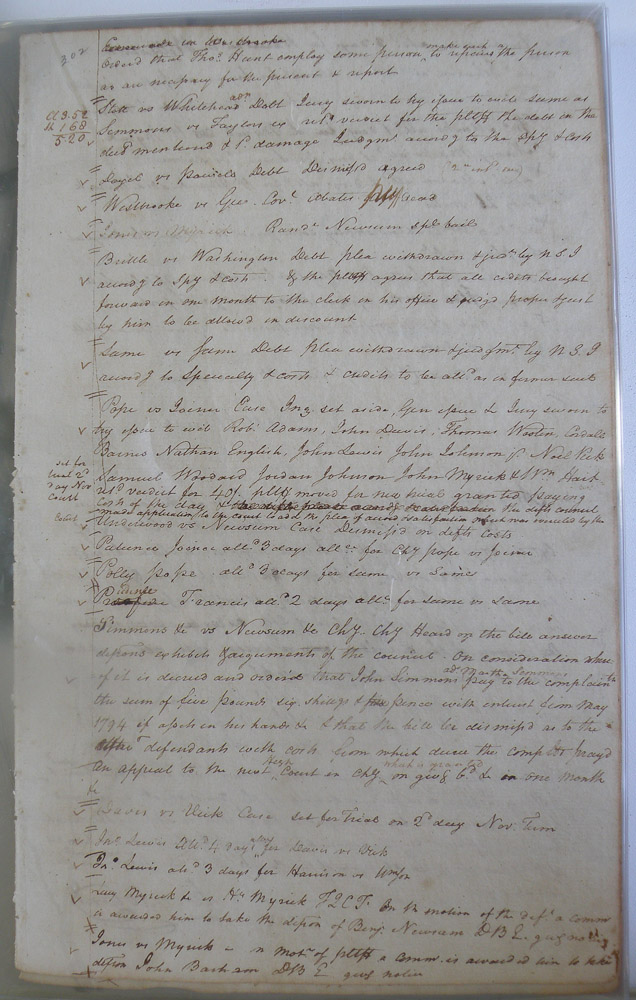 302
Ordered that Thos. Hunt employ some person to make such repairs the person
as are necessary for the present & report
Cl 3.52
1.68
5 20
State vs Whitehead adr Debt Jury sworn to try issue to wit same as
Simmons vs Taylors ex retd verdict for the pltff the debt in the
decl mentiond & damage Judgmt accordg to the Spy & costs
vs Daniels Debt Dismissd agreed
Westbrooke vs Gee Covt abates pltff dead
Jones vs Myrick Rand. Newsum spl bail
Brittle vs Washington Debt plea withdrawn & judt by N S I
accordg to Spy & costs. & the pltff agrees that all credits brought
forward in one month to the clerk in his office & judgd proper & just
by him to be allowd in discount
Same vs Same Debt plea withdrawn & judgmt by N S I
accordg to Specialty & costs & credits to be alld as in former suit
Pope vs Joiner Case Inq. set aside, Gen issue & Jury sworn to
try issue to wit Robt Adams, John Davis, Thomas Wooten, Cordall
Barnes Nathan English, John Lewis John Johnson Noel Vick
set for
trial 2d
day Nov
Court
Samuel Woodard Jordan Johnson John Myrick & Wm Hart
retd verdict for 40/. pltff moved for new trial granted paying
costs of the day & the defts council
made application to the court to add the plea of accord & satisfaction which was by the
Underwood vs Newsum Case Dismissd on defts costs
Patience Joiner alld 3 days attce for Chy pope vs Joiner
Polly pope alld 3 days for same vs Same
Prudence Francis alld 2 days attce for same vs Same
Simmons &c vs Newsum &c Chy. Chy Heard on the bill answer
depons exhibits & arguments of the council. On consideration where
of it is decreed and orderd that John Simmons adr Martha Simmons pay to the complaint
the sum of five pounds six shillgs & pence with interest from May
1794 if assets in his hands &c & that the bill be dismissd as to the
other defendants with costs from which decree the complts prayd
an appeal to the next High Court in Chy which is granted on givg bd &c in one month
&c
Davis vs Vick Case set for trial on 2d day Nov. Term
Jno. Lewis alld 4 days for Davis vs Vick
Jno. Lewis alld 3 days for Harrison vs
Myrick &c vs Hy Myrick On the motion of the deft a comm
is awarded him to take the depon of Benj. Newsum D B E. givg notice
Jones vs Myrick - on mot. of pltff a comm. is awarded him to take
depon John Barham D B E givg notice